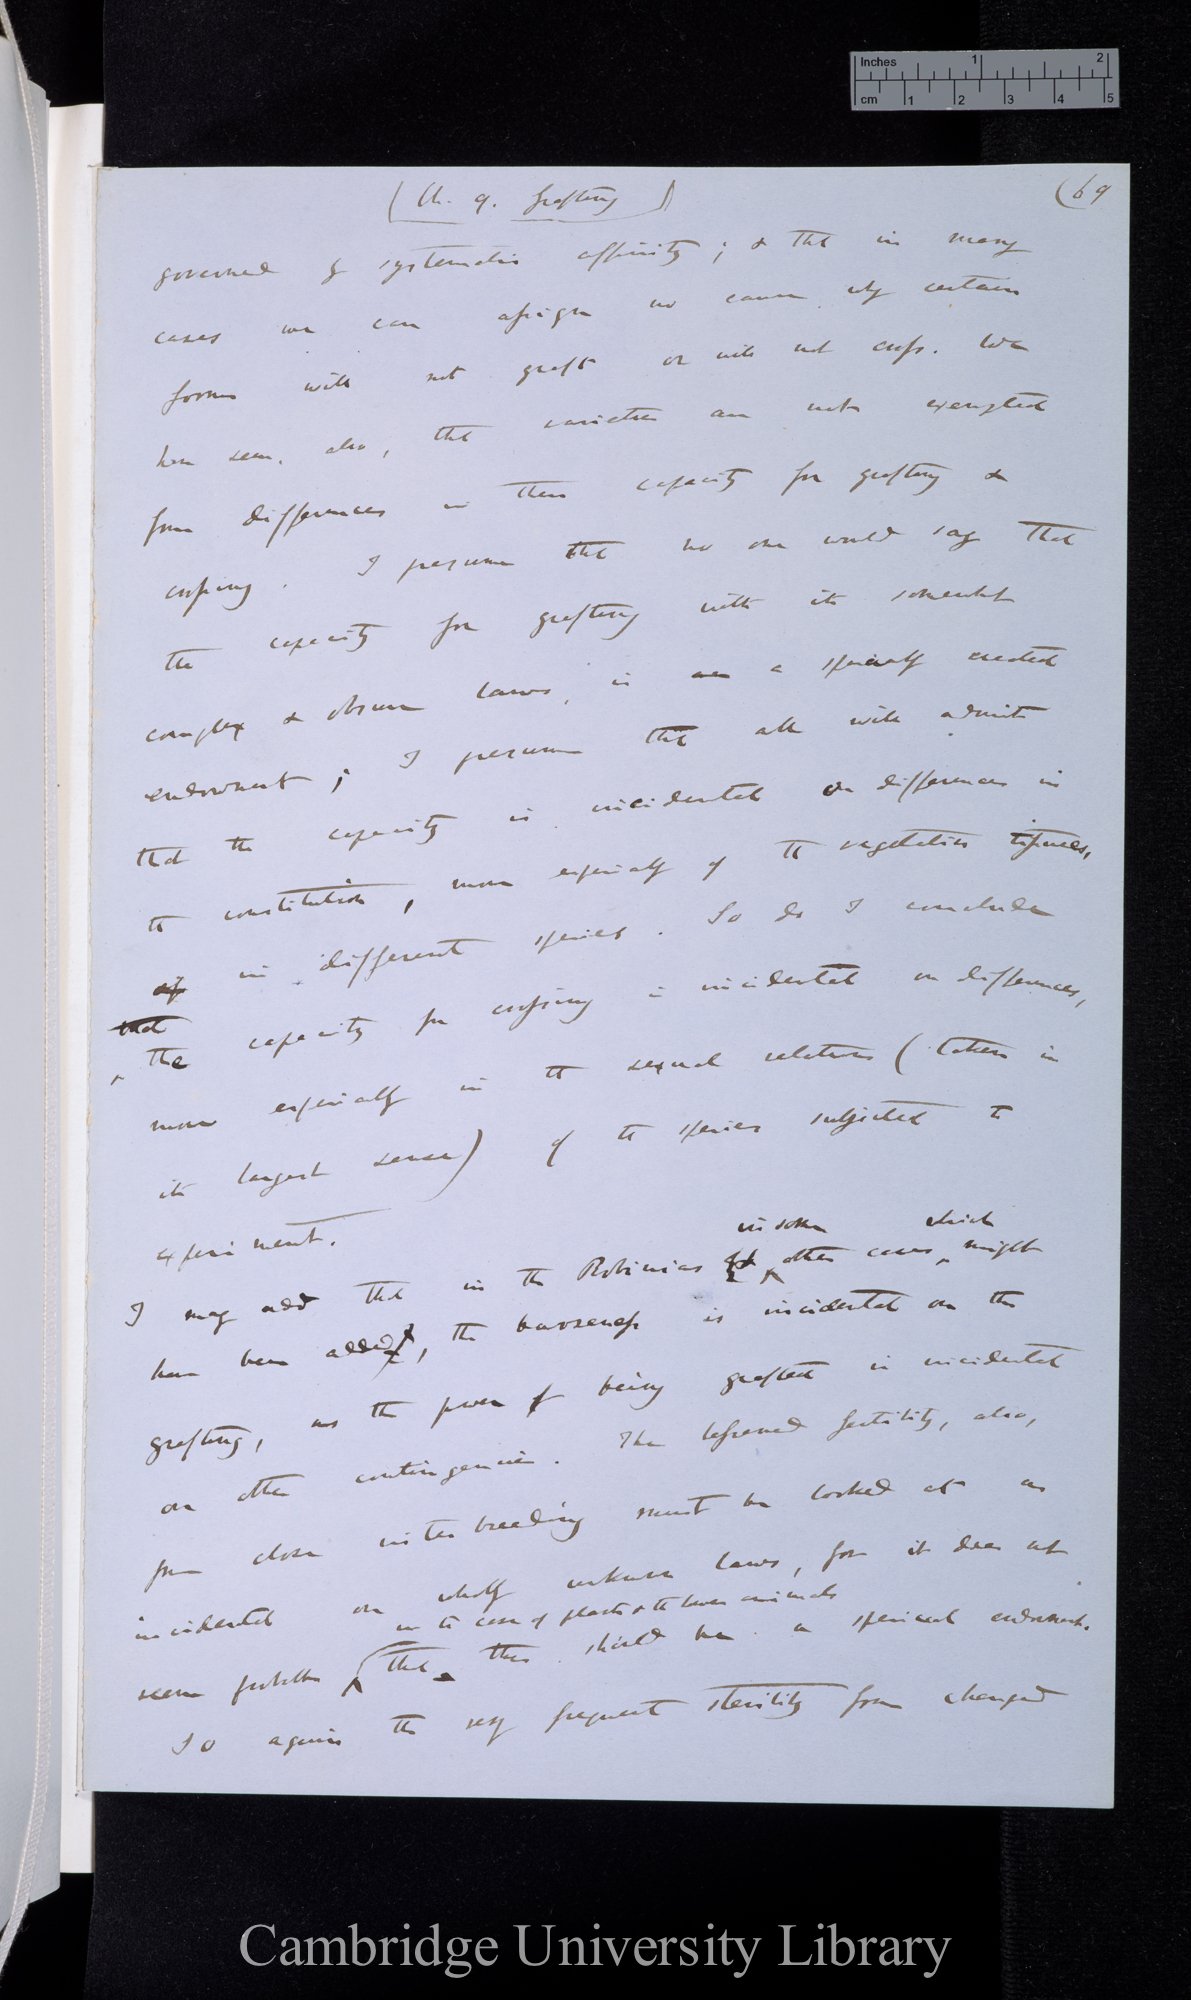 Inches 1 2
cm 1 2 3 4 5
(Ch. 9. Grafting)
(69
governed by systematic affinity; & that in many
cases we can assign no cause why certain
forms will not graft or will not cross. We
have seen, also, that varieties are not exempted
from differences in their capacity for grafting &
crossing. I presume that no one would say that
the capacity for grafting with its somewhat
complex & obscure laws, is a specially created
endowment; I presume that all will admit
that the capacity is incidental on differences in
the constitution, more especially of the vegetative tissues,
of in different species. So do I conclude
that
the capacity for crossing is incidental on differences,
more especially in the sexual relations (taken in
its largest sense) of the species subjected to
experiment.
in some which
I may add that in the Robinias & other cases, might
have been added, the barrenness is incidental on the
grafting, as the power of being grafted is incidental
on other contingencies. The lessened fertility, also,
from close interbreeding must be looked at as
incidental on wholly unknown laws, for it does not
in the case of plants & the lower animals
seem probable that this should be a special endowment.
So again the very frequent sterility from changed
Cambridge University Library